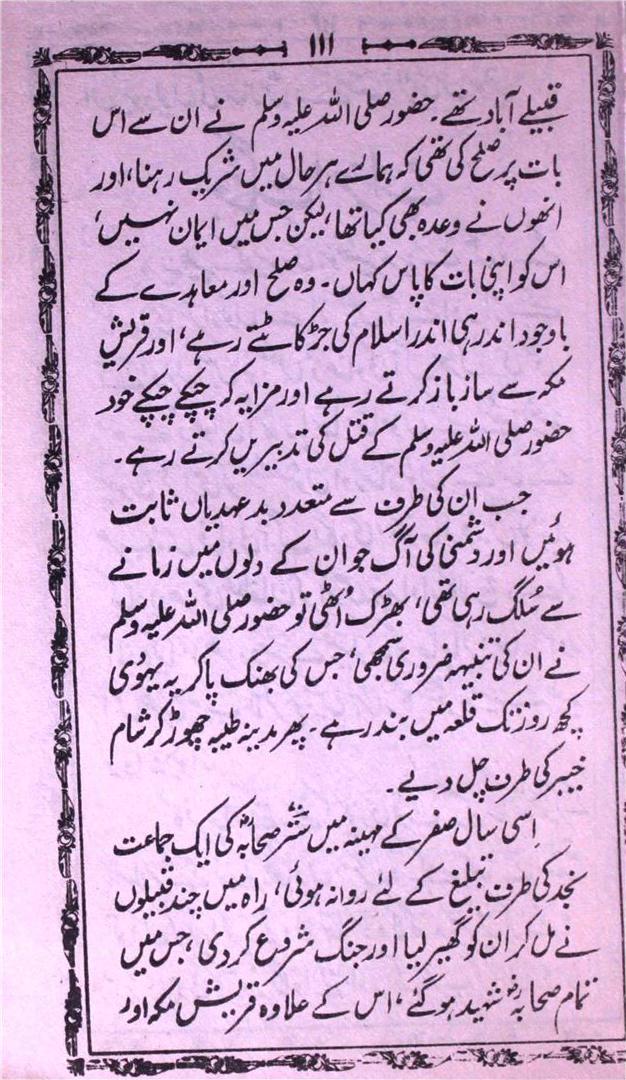 ۱۱۱
قبیلے آباد تھے۔ حضور صلی اللہ علیہ وسلم نے ان سے اس
بات پر صلح کی تھی کہ ہمارے ہر حال میں شریک رہنا، اور
انھوں نے وعدہ بھی کیا تھا، لیکن جس میں ایمان نہیں،
اس کو اپنی بات کا پاس کہاں۔ وہ صلح اور معاہدے کے
باوجود اندر ہی اندر اسلام کی جڑ کاٹتے رہے، اور قریش
مکہ سے ساز باز کرتے رہے اور مزا یہ کہ چپکے چپکے خود
حضور صلی اللہ علیہ وسلم کے قتل کی تدبیریں کرتے رہے۔
جب ان کی طرف سے متعدد بدعہدیاں ثابت
ہوئیں اور دشمنی کی آگ جو ان کے دلوں میں زمانے
سے سُلگ رہی تھی، بھڑک اُٹھی تو حضور صلی اللہ علیہ وسلم
نے ان کی تنبیہہ ضروری سمجھی، جس کی بھنک پا کر یہ یہوُدی
کچھ روز تک قلعہ میں بند رہے۔ پھر مدینہ طیبہ چھوڑ کر شام
خیبر کی طرف چل دیے۔
اِسی سال صفر کے مہینہ میں ستّر صحابہؓ کی ایک جماعت
نجد کی طرف تبلیغ کے لئے روانہ ہوئی، راہ میں چند قبیلوں
نے مل کر ان کو گھیر لیا اور جنگ شروع کر دی، جس میں
تمام صحابہؓ شہید ہو گئے، اس کے علاوہ قریش مکہ اور